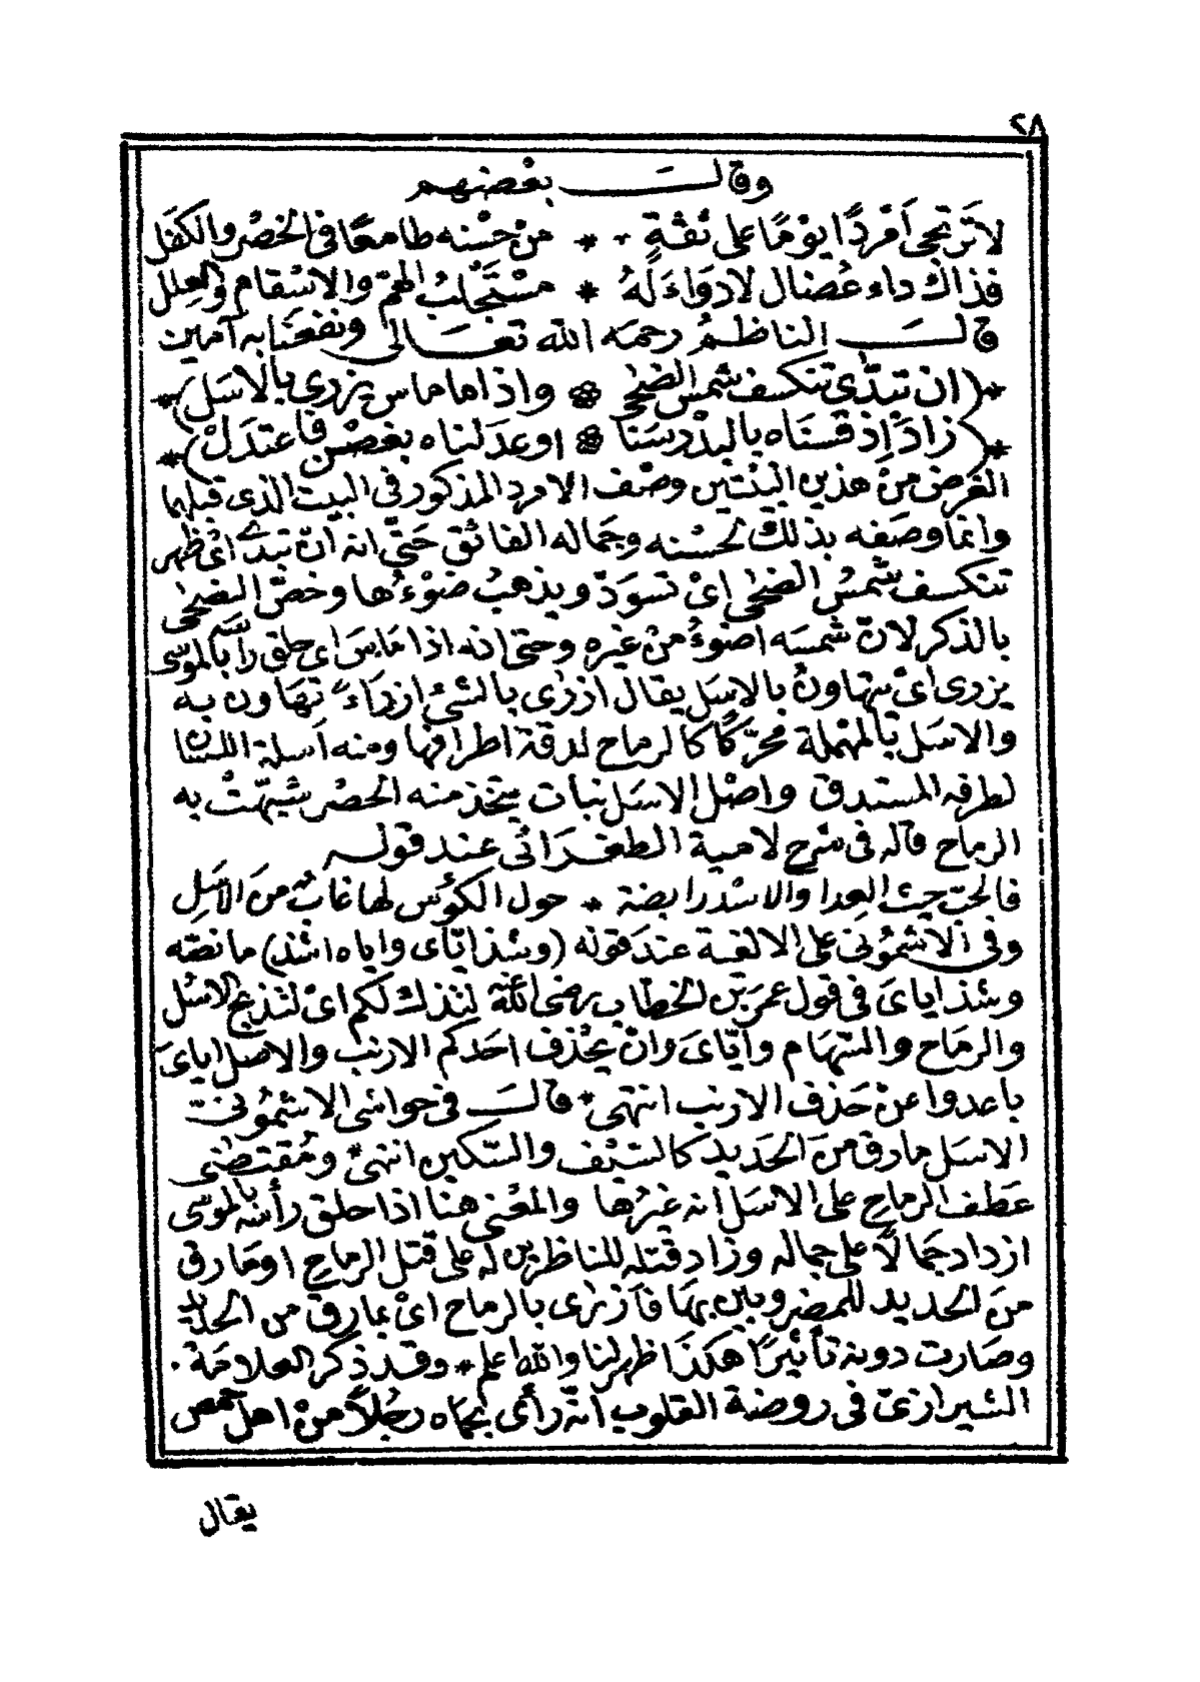 ٢٨
وقال بعضهم
لا ترتجى أمردًا يومًا على ثقةٍ * من حسنه طامعًا فى الخصر والكفل
فذاك داء عضال لا دواء له * مستجلب الهمّ والاسقام والعلل
قال الناظم رحمه الله تعالى ونفعنا به آمين
*(ان تبدّى تنكسف شمس الضحى * واذا ما ماس يزرى بالاسل)*
*(زاد إذ قسناه بالبدر سنا * او عدلناه بغصن فاعتدل)*
الغرض من هذين البيتين وصف الامرد المذكور فى البيت الذى قبلهما
وانما وصفه بذلك لحسنه وجماله الفائق حتّى انه ان تبدى اى ظهر
تنكسف شمس الضحى اى تسودّ ويذهب ضوءها وخصّ الضحى
بالذكر لانّ شمسه اضوء من غيره وحتى انه اذا ماس اى حلق رأسه بالموسى
يزرى اى يتهاون بالاسل يقال ازرى بالشئ ازراءً تهاون به
والاسل بالمهملة محرّكًا كالرماح لدقة اطرافها ومنه أسلة اللسان
لطرفه المستدق واصل الاسل نبات يتخذ منه الحصر شبهت به
الرماح قاله فى شرح لامية الطغرائى عند قوله
فالحبّ حيث العدا والاسد رابضة * حول الكؤس لها غاب من الاسل
وفى الاشمونى على الالفية عند قوله (وشذ ايّاى واياه اشذ) ما نصّه
وشذ اياى فى قول عمر بن الخطاب رضى الله عنه لتذك لكم اى لتذبح الاسل
والرماح والسهام وايّاى وان يحذف احدكم الارنب والاصل اياى
باعدوا عن حذف الارنب انتهى * قال فى حواشى الاشمونى
الاسل ما رق من الحديد كالسيف والسّكين انتهى ومقتضى
عطف الرماح على الاسل انه غيرها والمعنى هنا اذا حلق رأسه بالموسى
ازداد جمالًا على جماله وزاد قتله للناظرين له على قتل الرماح او ما رق
من الحديد للمضروبين بها فأزرى بالرماح اى بما رق من الحديد
وصارت دونه تأثيرًا هكذا ظهر لنا والله اعلم * وقد ذكر العلامة
الشيرازى فى روضة القلوب انه رأى بحماه رجلًا من اهل حمص
يقال